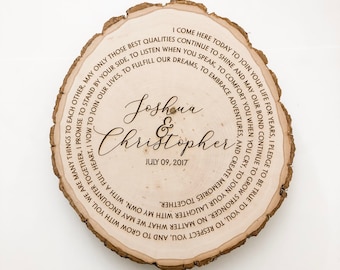 I COME HERE TODAY TO JOIN YOUR LIFE FOR YEARS, I PLEDGE TO BE TRUE TO YOU, TO RESPECT YOU, AND TO GROW WITH YOU. WE ARE MANY THINGS TO EACH OTHER, MAY ONLY THOSE BEST QUALITIES CONTINUE TO SHINE AND MAY OUR BOND CONTINUE TO GROW STRONGER. NO MATTER WHAT WE MAY ENCOUNTER TOGETHER, I PROMISE TO STAND BY YOUR SIDE, TO LISTEN WHEN YOU SPEAK, TO COMFORT YOU WHEN YOU CRY, TO JOIN YOUR LAUGHTER WITH MY OWN. WITH A FULL HEART, I VOW TO JOIN OUR LIVES, TO FULFILL OUR DREAMS, TO EMBRACE ADVENTURES, AND CREATE MEMORIES TOGETHER.
Joshua
&
Christopher
JULY 09, 2017